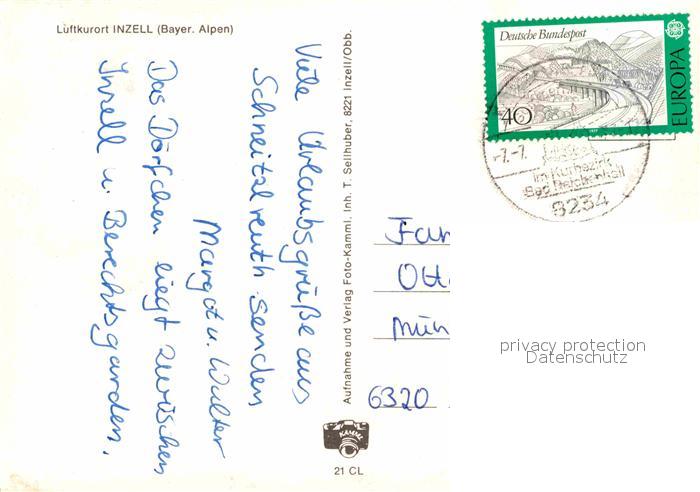 Luftkurort INZELL (Bayer. Alpen)
Viele Urlaubsgrüße aus
Schneitzlreuth senden
Margot u. Walter
Das Dörfchen liegt zwischen
Inzell u. Berechtsgarden.
Aufnahme und Verlag Foto-Kamml, Inh. T. Sellhuber, 8221 Inzell/Obb.
KAMML
21 CL
Deutsche Bundespost
40
EUROPA
1977
-7.-7.
im Kurbezirk
Bad Reichenhall
8234
Fam
Otto
Mün
6320
privacy protection
Datenschutz